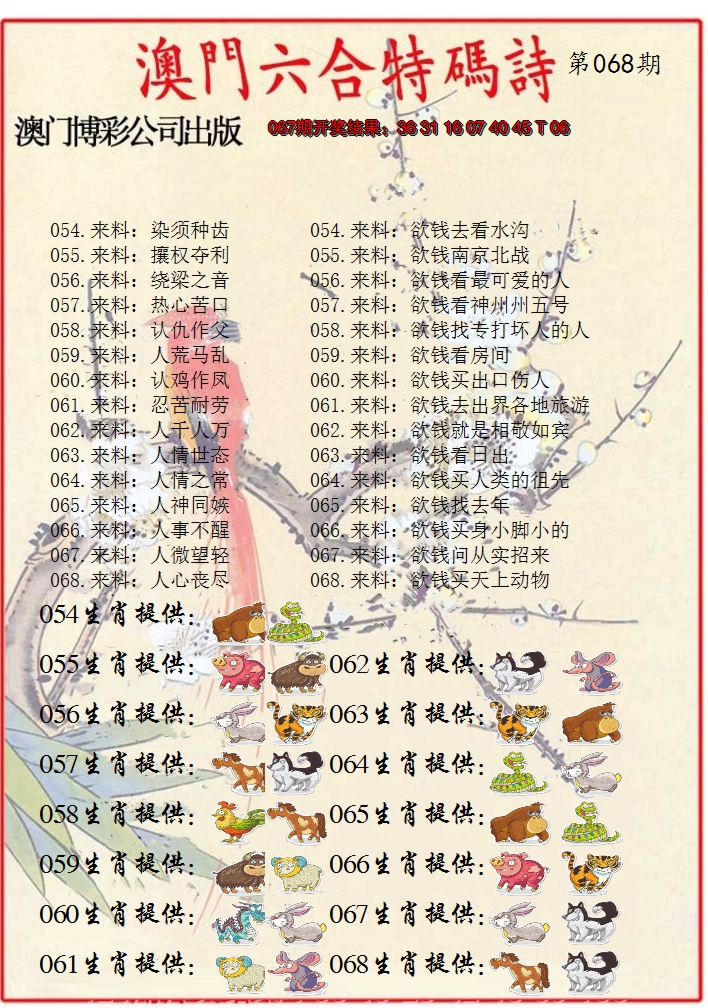 澳門六合特碼詩 第068期
澳门博彩公司出版 067期开奖结果：36 31 16 07 40 45 T 06
054.来料：染须种齿 054.来料：欲钱去看水沟
055.来料：攘权夺利 055.来料：欲钱南京北战
056.来料：绕梁之音 056.来料：欲钱看最可爱的人
057.来料：热心苦口 057.来料：欲钱看神州州五号
058.来料：认仇作父 058.来料：欲钱找专打坏人的人
059.来料：人荒马乱 059.来料：欲钱看房间
060.来料：认鸡作凤 060.来料：欲钱买出口伤人
061.来料：忍苦耐劳 061.来料：欲钱去出界各地旅游
062.来料：人千人万 062.来料：欲钱就是相敬如宾
063.来料：人情世态 063.来料：欲钱看日出
064.来料：人情之常 064.来料：欲钱买人类的祖先
065.来料：人神同嫉 065.来料：欲钱找去年
066.来料：人事不醒 066.来料：欲钱买身小脚小的
067.来料：人微望轻 067.来料：欲钱问从实招来
068.来料：人心丧尽 068.来料：欲钱买天上动物
054生肖提供：
055生肖提供： 062生肖提供：
056生肖提供： 063生肖提供：
057生肖提供： 064生肖提供：
058生肖提供： 065生肖提供：
059生肖提供： 066生肖提供：
060生肖提供： 067生肖提供：
061生肖提供： 068生肖提供：